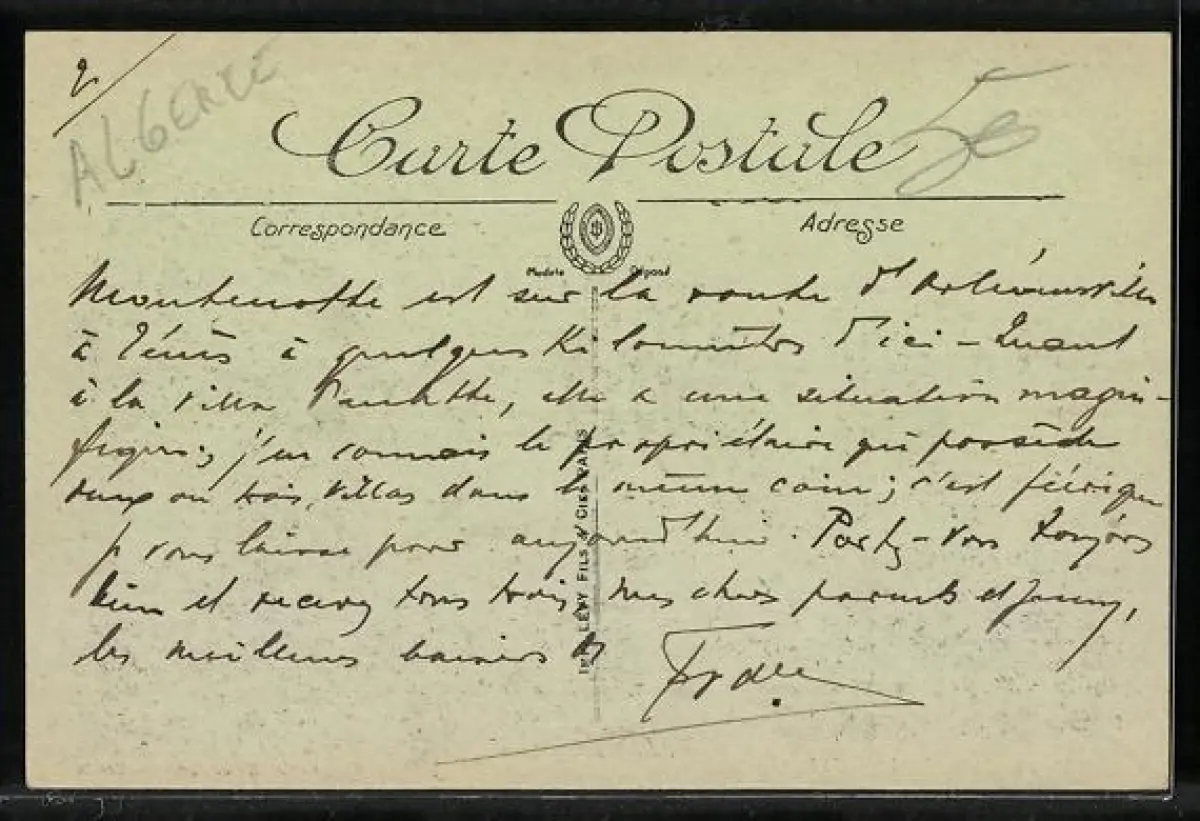 2/
ALGERIE
5e
Carte Postale
Correspondance
Adresse
Modèle Déposé
Montenotte est sur la route d'Orléansville
à Ténès à quelques kilomètres d'ici - Quant
à la villa Paulette, elle a une situation magni-
fique ; j'en connais le propriétaire qui possède
deux ou trois villas dans le même coin ; c'est féérique
je vous laisse pour aujourd'hui. Portez-vous toujours
bien et recevez tous trois, mes chers parents et Jenny,
les meilleurs baisers de
LÉVY FILS & CIE PARIS